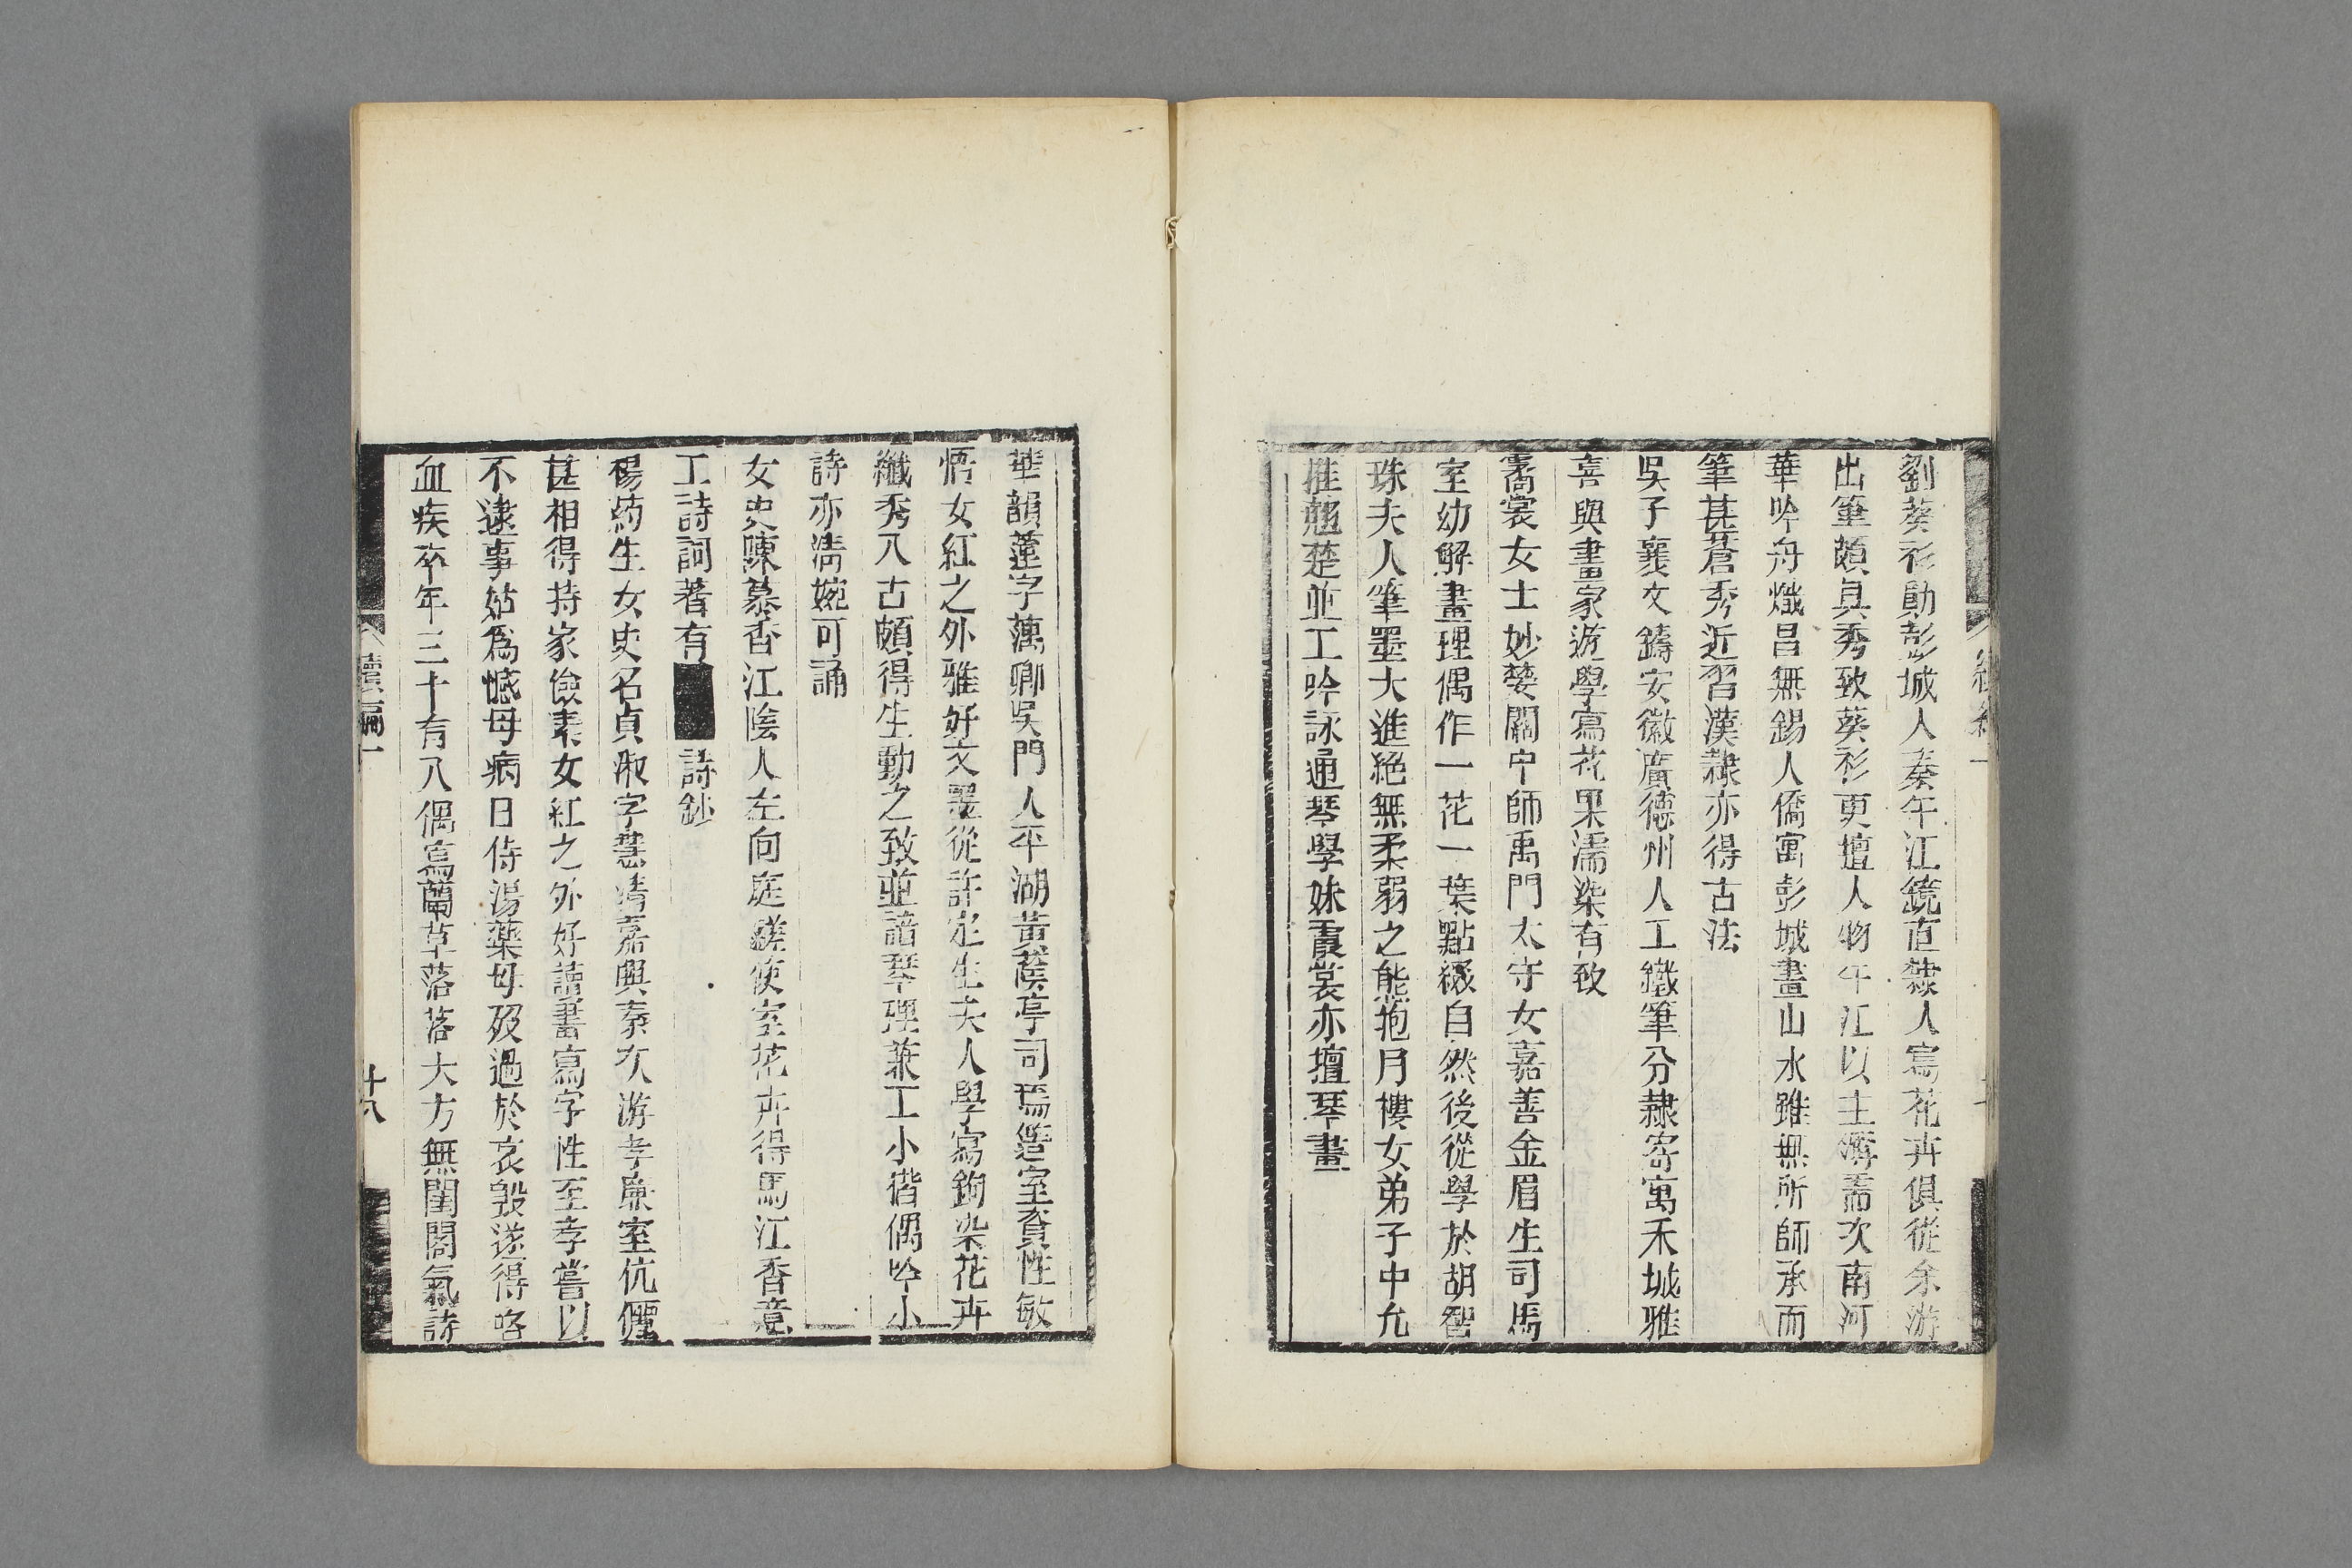 劉葵衫勛彭城人秦午江鏡直隸人寫花卉俱從余游
出筆頗具秀致葵衫更擅人物午江以主簿需次南河
華吟舟熾昌無錫人僑寓彭城畫山水雖無所師承而
筆甚蒼秀近習漢隸亦得古法
吳子襄文鑄安徽廣德州人工鐵筆分隸寄寓禾城雅
喜與畫家遊學寫花果濡染有致
霱裳女士妙蕖關中師禹門太守女嘉善金眉生司馬
室幼解畫理偶作一花一葉點綴自然後從學於胡智
珠夫人筆墨大進絕無柔弱之態抱月樓女弟子中允
推翹楚並工吟詠通琴學妹霞裳亦擅琴畫
續編一
華韻蓮字蕅卿吳門人平湖黃菱亭司馬簉室賚性敏
悟女紅之外雅好文墨從許定生夫人學寫鉤染花卉
纖秀入古頗得生動之致並諳琴理兼工小楷偶吟小
詩亦清婉可誦
女史陳慕香江陰人左向庭鹺使室花卉得馬江香意
工詩詞著有 詩鈔
楊葯生女史名貞淑字慧清嘉興秦次游孝廉室伉儷
甚相得持家儉素女紅之外好讀書寫字性至孝嘗以
不逮事姑爲憾母病日侍湯藥母歿過於哀毀遂得咯
血疾卒年三十有八偶寫蘭草落落大方無閨閣氣詩
續編一
十八